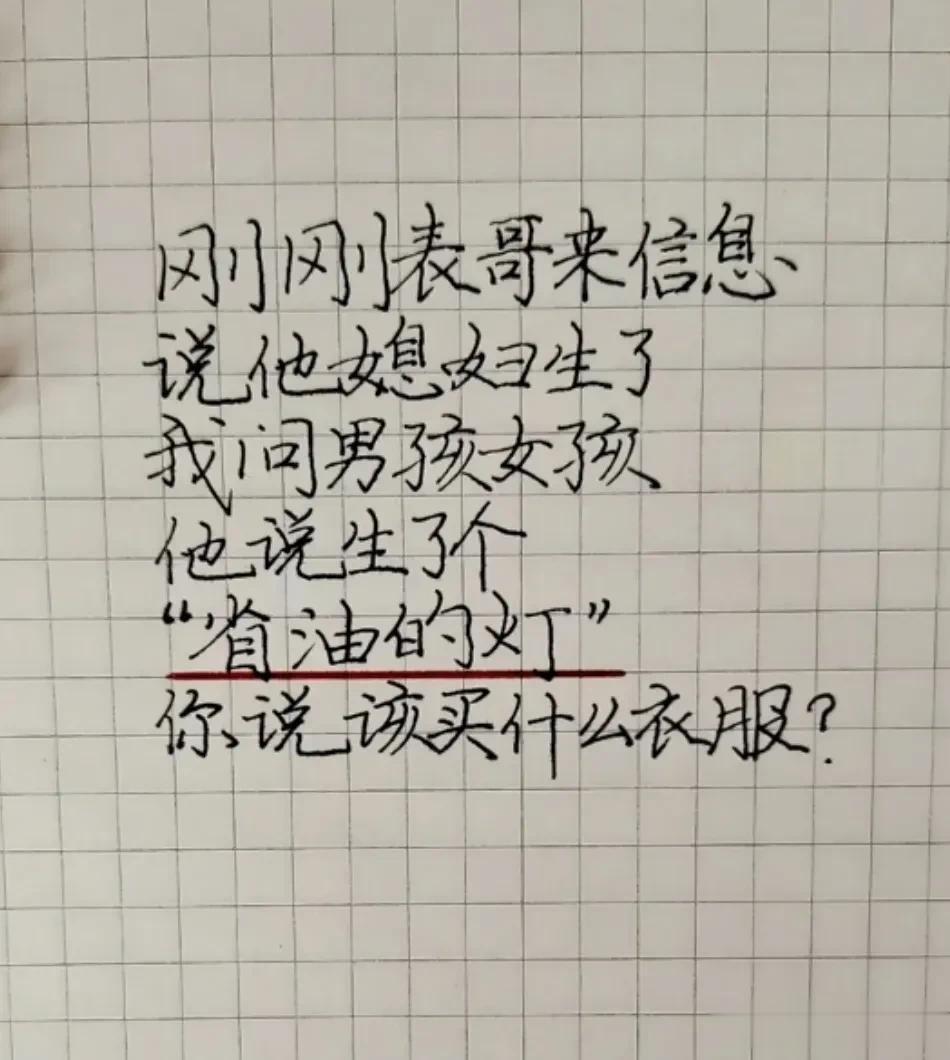 刚刚表哥来信息
说他媳妇生了
我问男孩女孩
他说生了个
“省油的灯”
你说该买什么衣服?